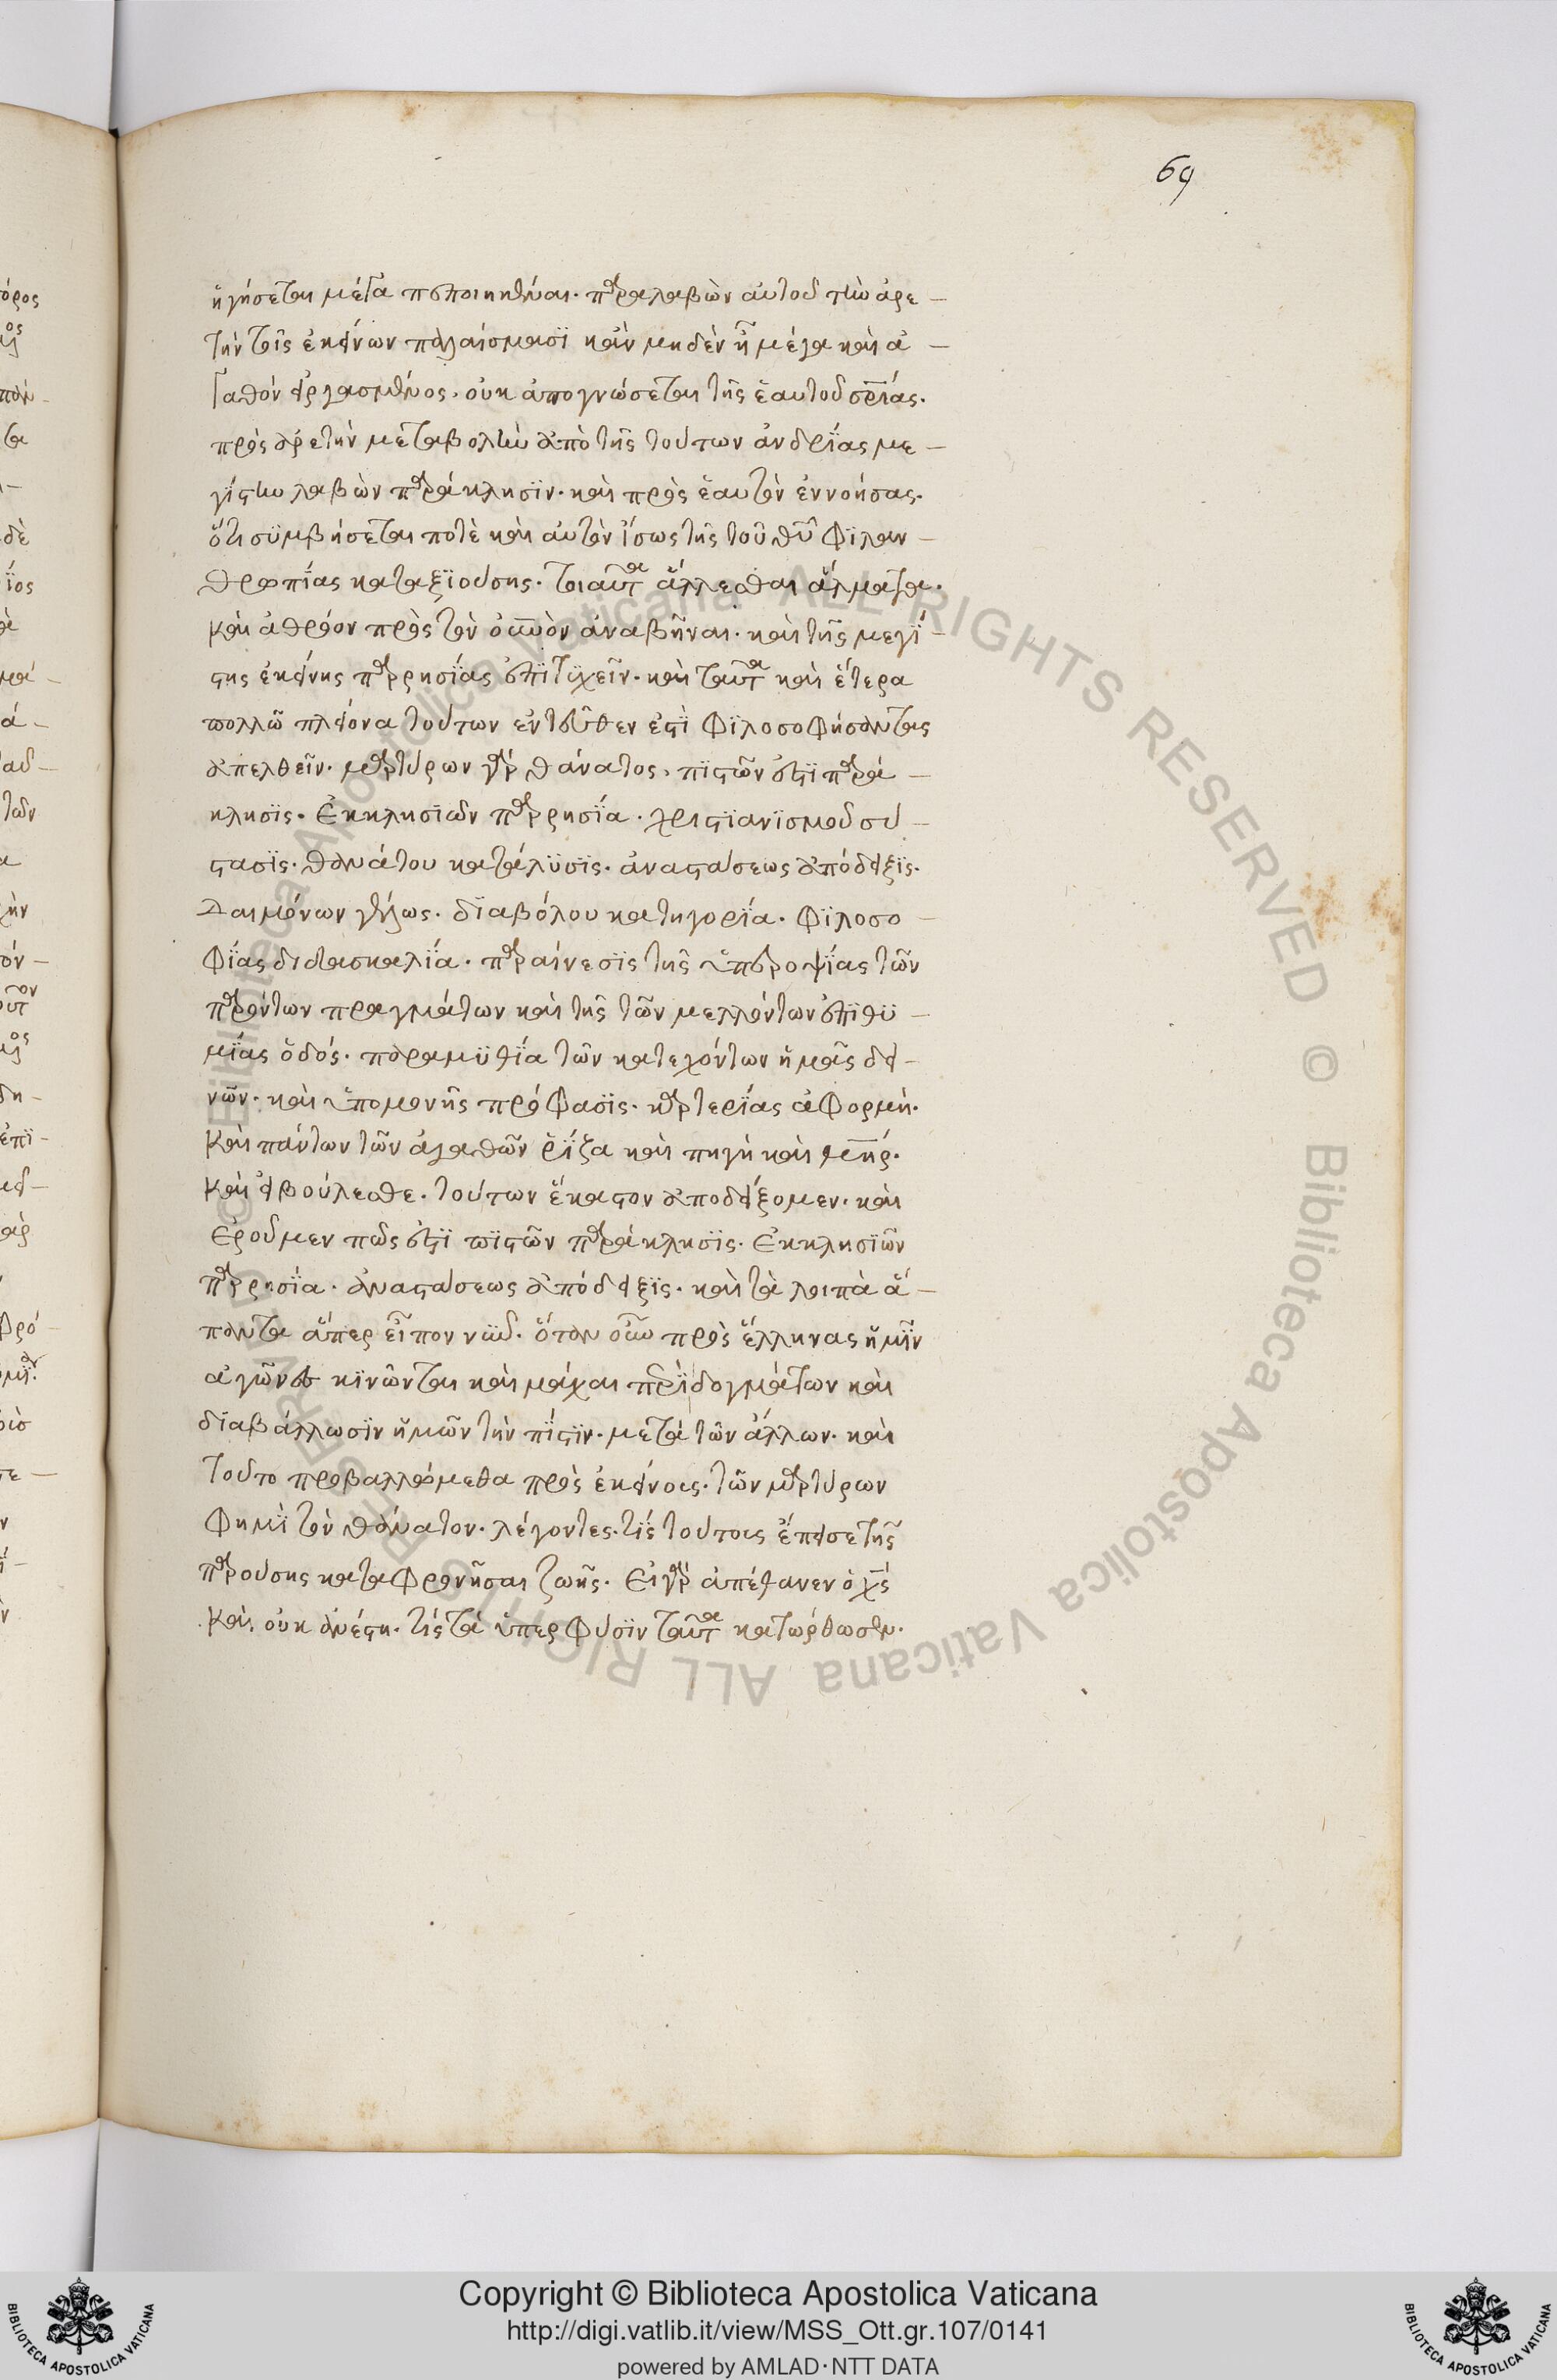 69
ἡγήσεται μέγα πεποιηκέναι. παραλαβὼν αὐτοῦ τὴν ἀρε-
τὴν τοῖς ἐκείνων παλαίσμασϊ κἂν μηδὲν ᾖ μέγα καὶ ἀ-
γαθὸν εἰργασμένος. οὐκ ἀπογνώσεται τῆς ἑαυτοῦ σρίας.
πρὸς ἀρετὴν μεταβολὴν ἀπὸ τῆς τούτων ἀνδρΐας με-
γίστην λαβὼν παράκλησϊν. καὶ πρὸς ἑαυτὸν ἐννοήσας.
ὅτι σϋμβήσεταί ποτὲ καὶ αὐτὸν ἴσως τῆς τοῦ θυ φϊλαν-
θρωπίας καταξϊούσης. τοιαῦτα ἅλλεσθαι ἅλματα.
καὶ ἀθρόον πρὸς τὸν οὐνὸν ἀναβῆναι. καὶ τῆς μεγΐ-
στης ἐκείνης παρρησΐας ἐπϊτϋχεῖν. καὶ ταῦτα καὶ ἕτερα
πολλῶ πλείονα τούτων ἐντεῦθεν ἐστὶ φϊλοσοφήσαντας
ἀπελθεῖν. μαρτύρων γὰρ θάνατος. πϊστῶν ἐστϊ παρά-
κλησϊς. Ἐκκλησϊῶν παρρησΐα. χριστϊανϊσμοῦ σύ-
στασϊς. θανάτου κατάλϋσϊς. ἀναστάσεως ἀπόδειξϊς.
Δαιμόνων γέλως. δϊαβόλου κατηγορΐα. φϊλοσο-
φΐας διδασκαλΐα. παραίνεσϊς τῆς ὑπεροψΐας τῶν
παρόντων πραγμάτων καὶ τῆς τῶν μελλόντων ἐπϊθϋ-
μΐας ὁδός. παραμϋθΐα τῶν κατεχόντων ἡμᾶς δει-
νῶν. καὶ ὑπομονῆς πρόφασϊς. καρτερΐας ἀφορμή.
καὶ πάντων τῶν ἀγαθῶν ῥΐζα καὶ πηγὴ καὶ μηρ.
καὶ εἰ βούλεσθε. τούτων ἕκαστον ἀποδείξομεν. καὶ
Ἐροῦμεν πῶς ἐστϊ πϊστῶν παράκλησϊς. Ἐκκλησϊῶν
παρρησΐα. ἀναστάσεως ἀπόδειξϊς. καὶ τὰ λοιπὰ ἅ-
παντα ἅπερ εἶπον νῦν. ὅταν οὖν πρὸς ἕλληνας ἡμῖν
ἀγῶνες κϊνῶνται καὶ μάχαι περὶ δογμάτων καὶ
δϊαβάλλωσϊν ἡμῶν τὴν πΐστϊν. μετὰ τῶν ἄλλων. καὶ
τοῦτο προβαλλόμεθα πρὸς ἐκείνοις. τῶν μαρτύρων
φημὶ τὸν θάνατον. λέγοντες. τΐς τούτοις ἔπεισε τῆς
παρούσης καταφρονῆσαι ζωῆς. Εἰ γὰρ ἀπέθανεν ὁ χς
καὶ οὐκ ἀνέστη. τίς τὰ ὑπερ φύσϊν ταῦτα κατώρθωσεν.
Copyright © Biblioteca Apostolica Vaticana
http://digi.vatlib.it/view/MSS_Ott.gr.107/0141
powered by AMLAD·NTT DATA